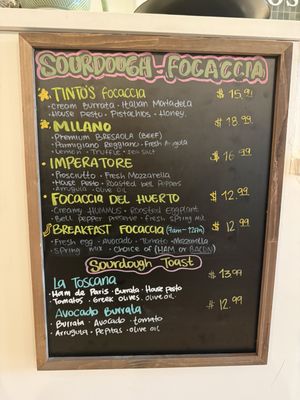 SOURDOUGH-FOCACCIA
TINTO'S FOCACCIA $15.99
• Cream Burrata • Italian Mortadela
House Pesto • Pistachios • Honey.
MILANO $18.99
• Premium BRESAOLA (BEEF)
• Parmigiano Reggiano • Fresh Arugula
• Lemon • Truffle • Sea Salt
IMPERATORE $16.99
• Prosciutto • Fresh Mozzarella
• House Pesto • Roasted bell Peppers
• Arrugula • Olive Oil
FOCACCIA DEL HUERTO $12.99
• Creamy HUMMUS • Roasted Eggplant
• Bell pepper preserve • Fresh Spring Mix
BREAKFAST FOCACCIA (9am-12pm) $12.99
• Fresh egg • Avocado • Tomato • Mozzarella
Spring Mix • Choice of (HAM or BACON)
Sourdough Toast
La Toscana $13.99
Ham de Paris • Burrata • House Pesto
Tomatos • Greek Olives • Olive Oil •
Avocado Burrata $12.99
• Burrata • Avocado • Tomato
• Arrugula • Pepitas • Olive oil